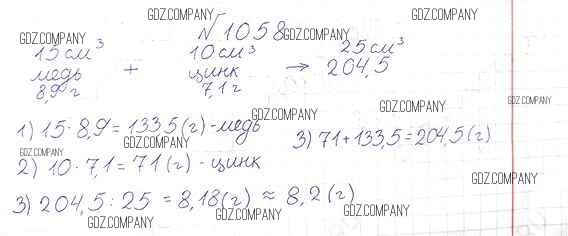 GDZ.COMPANY
N 1058 GDZ.COMPANY
GDZ.COMPANY
15 см³ 10 см³ 25 см³
медь + цинк → 204,5
8,9 г 7,1 г
GDZ.COMPANY GDZ.COMPANY
GDZ.COMPANY GDZ.COMPANY
GDZ.COMPANY
1) 15 · 8,9 = 133,5 (г) - медь 3) 71 + 133,5 = 204,5 (г)
GDZ.COMPANY
GDZ.COMPANY
2) 10 · 7,1 = 71 (г) - цинк
GDZ.COMPANY
3) 204,5 : 25 = 8,18 (г) ≈ 8,2 (г)
GDZ.COMPANY GDZ.COMPANY GDZ.COMPANY